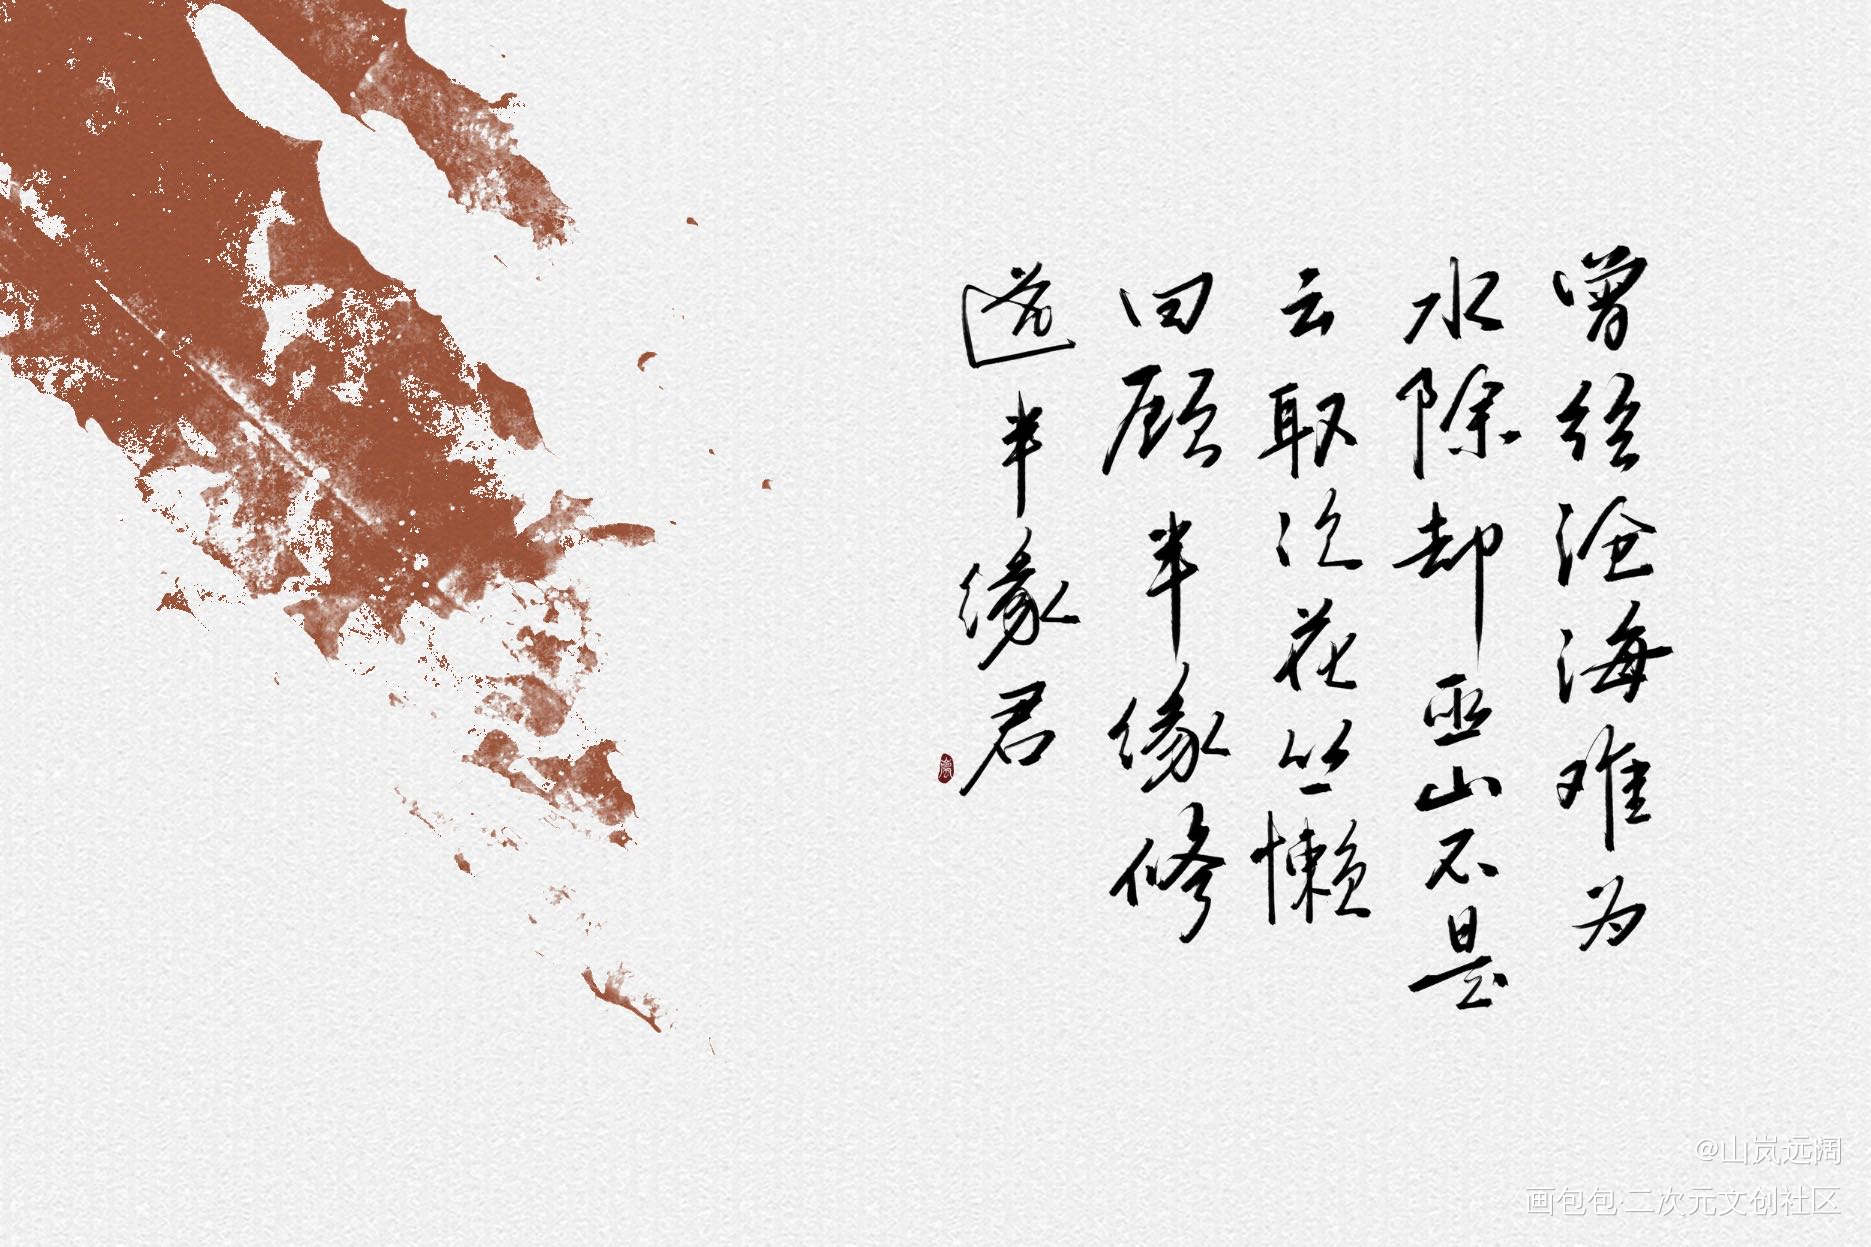 曾经沧海难为
水除却巫山不是
云取次花丛懒
回顾半缘修
道半缘君
@山岚远阔
画包包·二次元文创社区